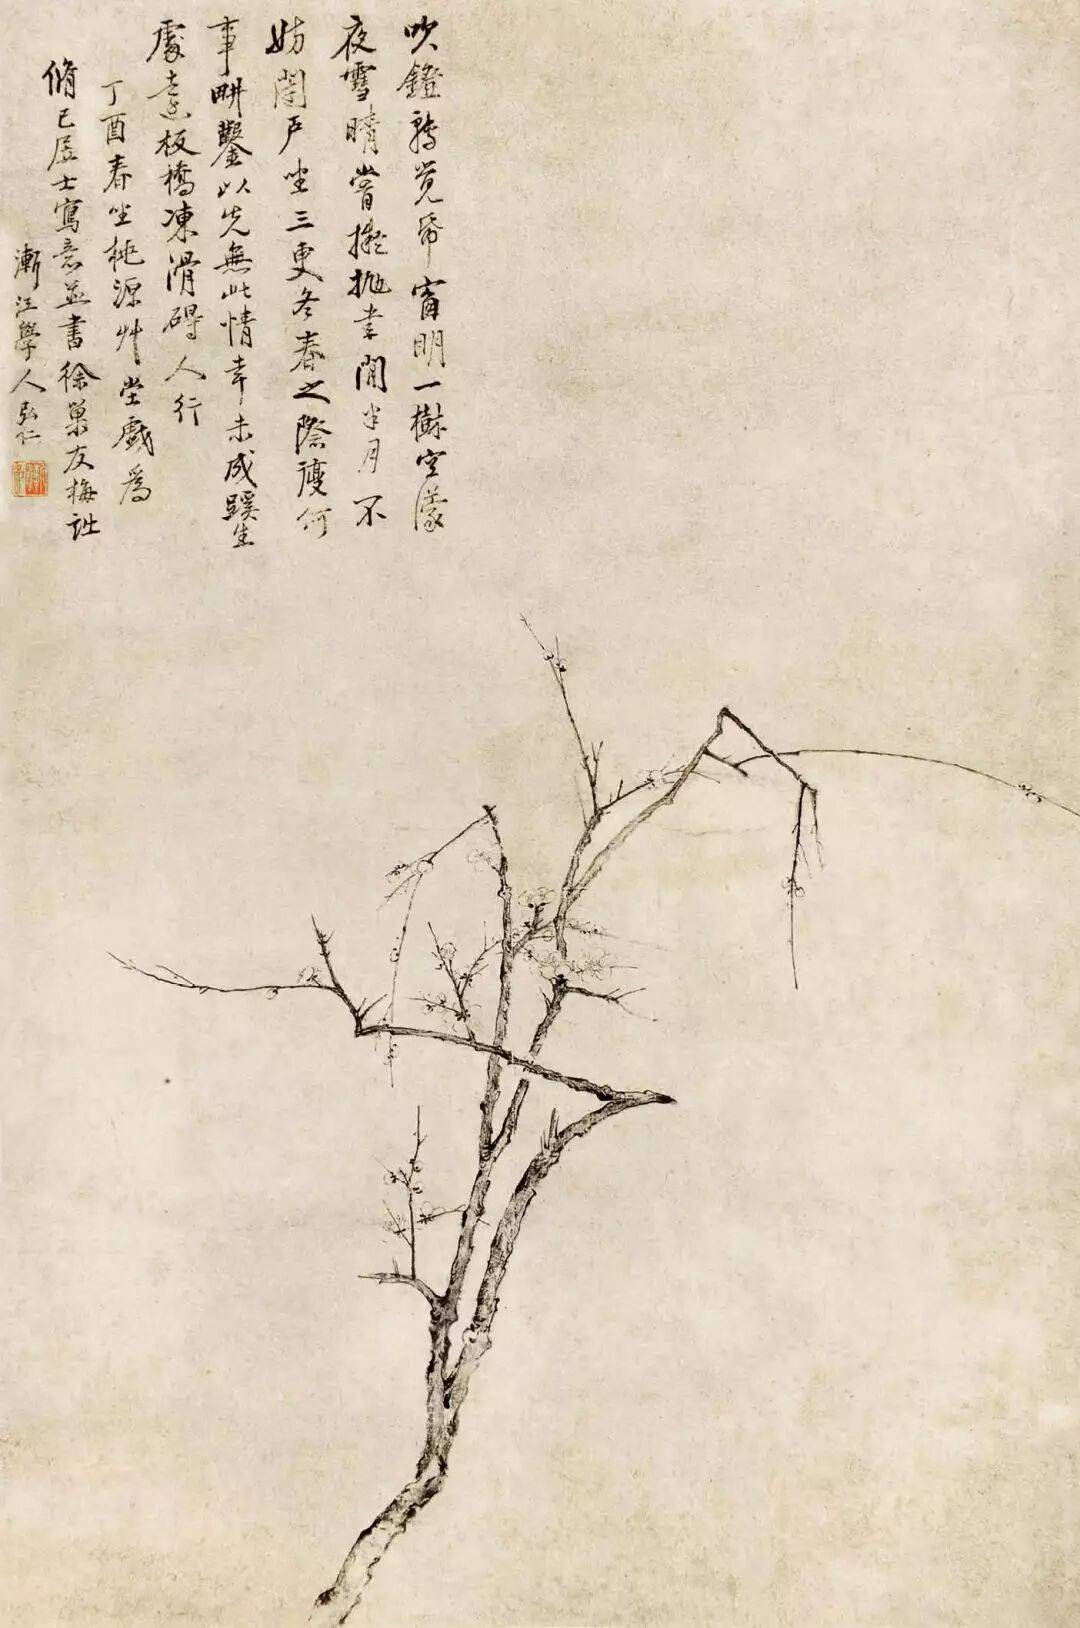 吹鐙轉覚紙窗明一樹空濛
夜雪晴嘗擬抛書閒半月不
妨閉戸坐三更冬春之際復何
事畊鑿以先無此情幸未成蹊生
處意板橋凍滑碍人行
丁酉春坐桃源艸堂戲爲
脩已居士寫意並書徐巢友梅詩
漸江學人弘仁